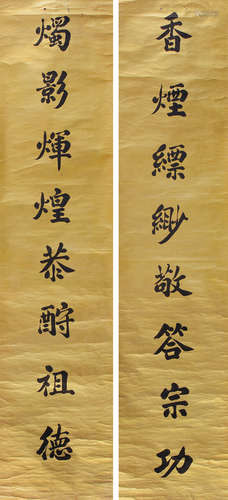 香煙縹緲敬答宗功
燭影煇煌恭酧祖德